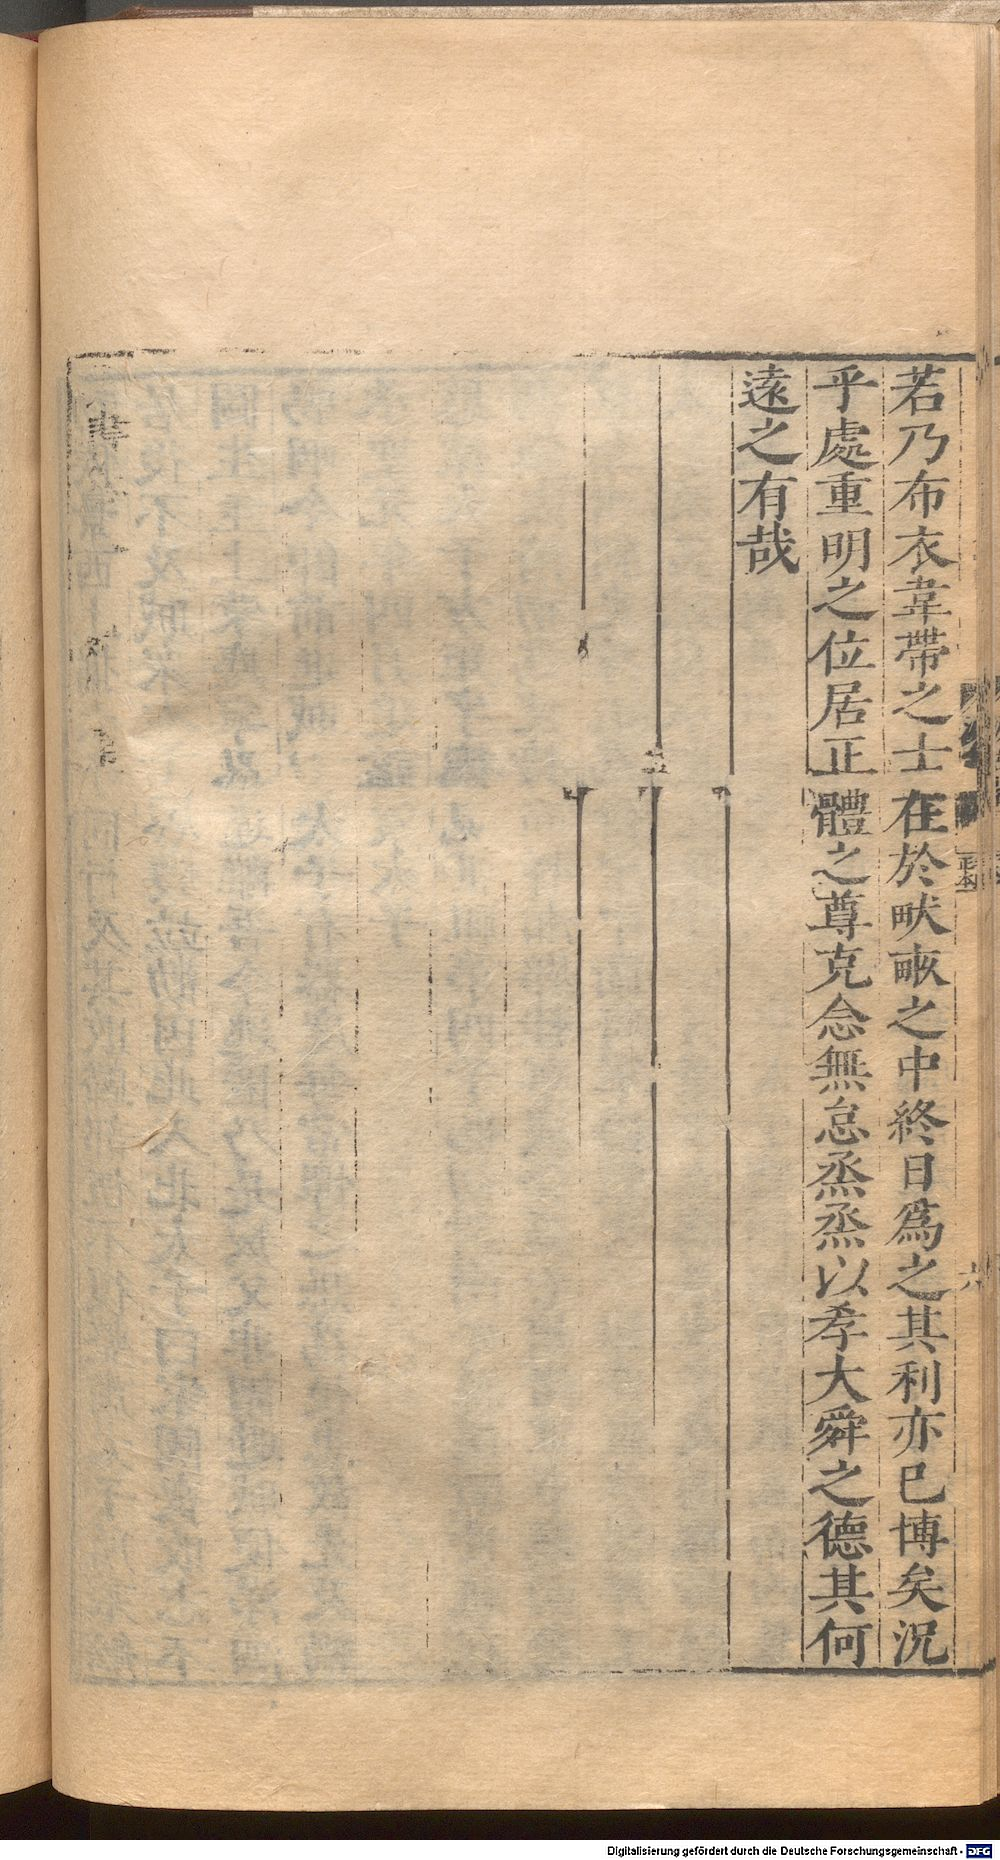 若乃布衣韋帶之士在於畎畝之中終日爲之其利亦已博矣況
乎處重明之位居正體之尊克念無怠烝烝以孝大舜之德其何
遠之有哉
正本
六
Digitalisierung gefördert durch die Deutsche Forschungsgemeinschaft - DFG